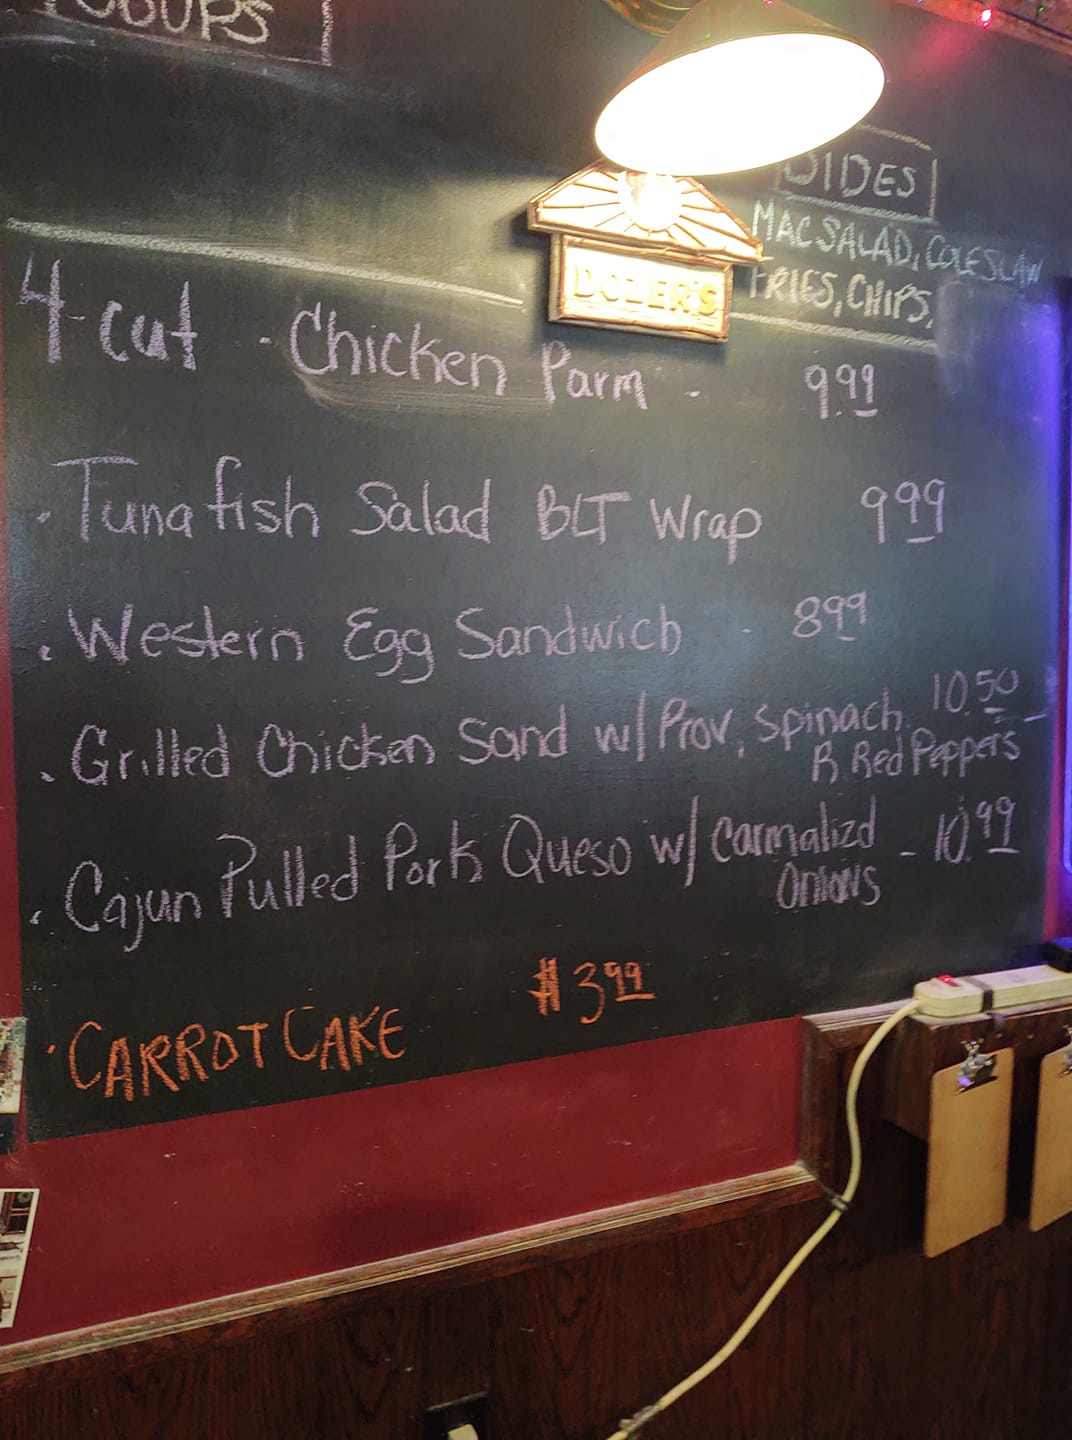 SIDES
MAC SALAD, COLESLAW
FRIES, CHIPS,
DOZER'S
4 cut - Chicken Parm - 9.99
· Tunafish Salad BLT Wrap 9.99
· Western Egg Sandwich - 8.99
· Grilled Chicken Sand w/ Prov, Spinach, 10.50
R. Red Peppers
· Cajun Pulled Pork Queso w/ Carmalizd - 10.99
Onions
· CARROT CAKE $3.99